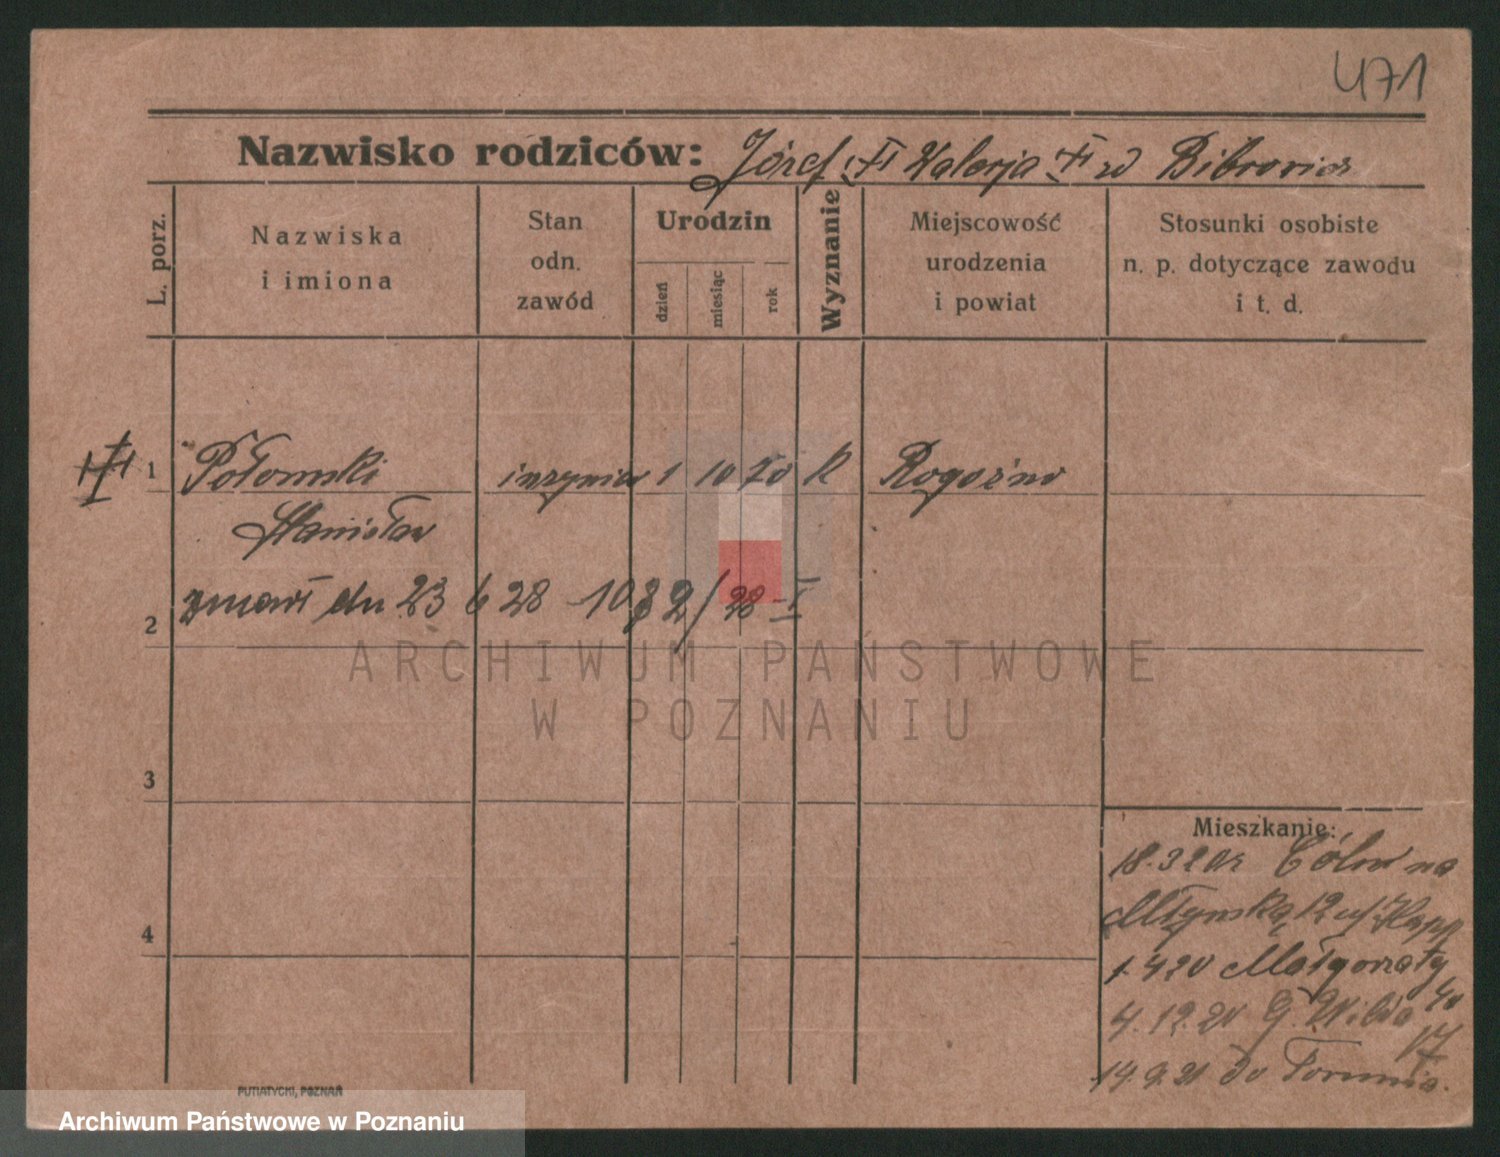 471
Nazwisko rodziców: Józef Walerja zd Bibrowicz
L. porz.
Nazwiska
i imiona
Stan
odn.
zawód
Urodzin
dzień
miesiąc
rok
Wyznanie
Miejscowość
urodzenia
i powiat
Stosunki osobiste
n. p. dotyczące zawodu
i t. d.
1 Połomski inżynier 1 10 70 k Rogoźno
Stanisław
zmarł dn 23 6 28 1032/28 I
2
3
4
Mieszkanie:
18.3 20 na
Młyńską 12
1.4 20 Małgorzaty
4.12.20 G. Wilda 40
17
14.9.21 do Torunia.
PUTIATYCKI, POZNAŃ
ARCHIWUM PAŃSTWOWE
W POZNANIU
Archiwum Państwowe w Poznaniu